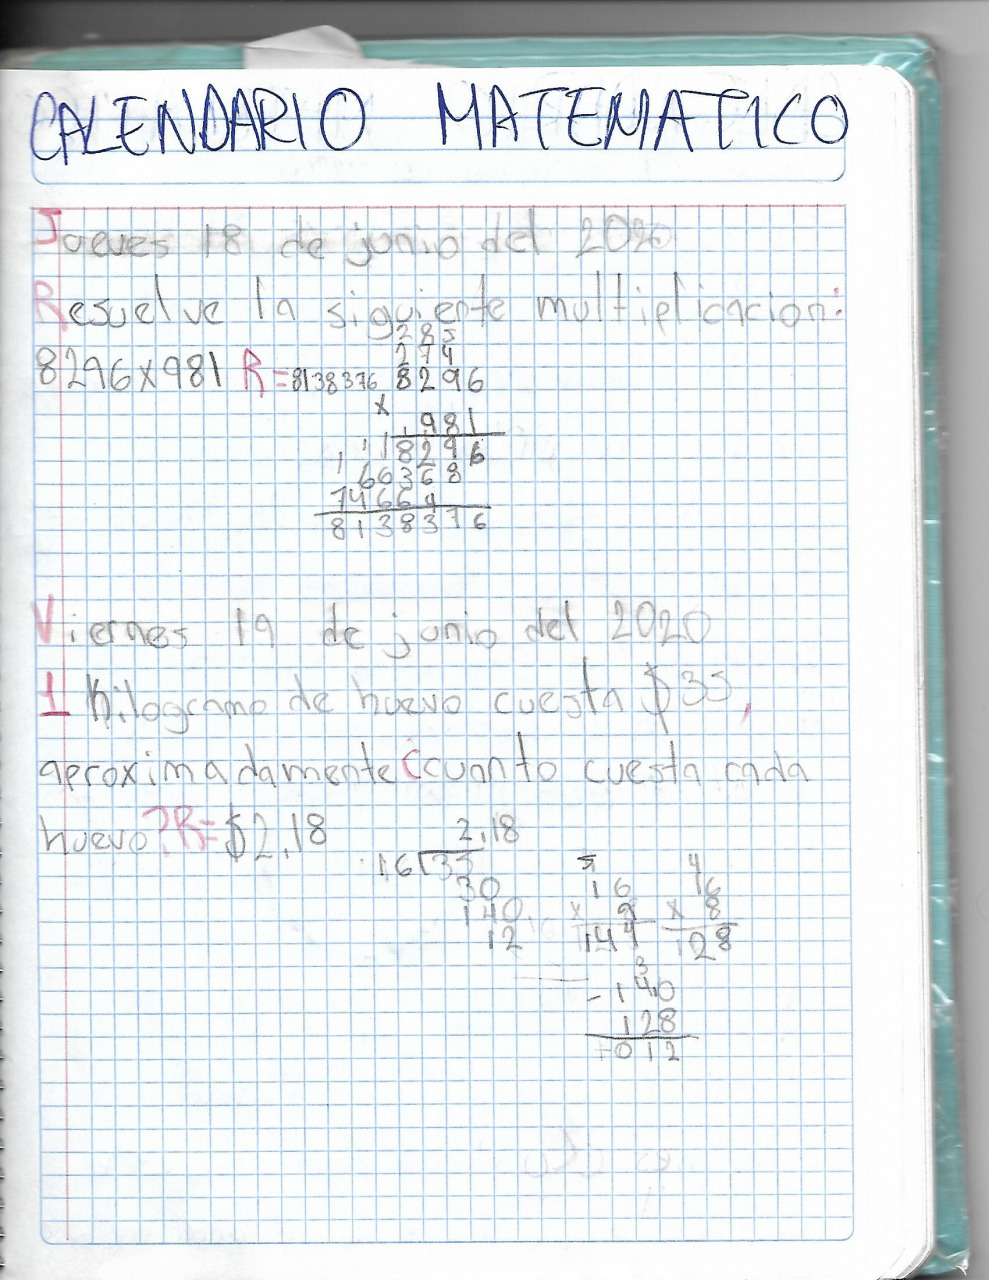 CALENDARIO MATEMATICO
Jueves 18 de junio del 2020
Resuelve la siguiente multiplicacion:
285
274
8296x981 R=8138376 8296
x
981
1 1 1
8296
66368
74664
8138376
Viernes 19 de junio del 2020
1 Kilogramo de huevo cuesta $35,
aproximadamente ¿cuanto cuesta cada
huevo? R=$2.18
2.18
16 35
30
140
12
5
16
x 9
144
4
16
x 8
128
3
- 140
128
012